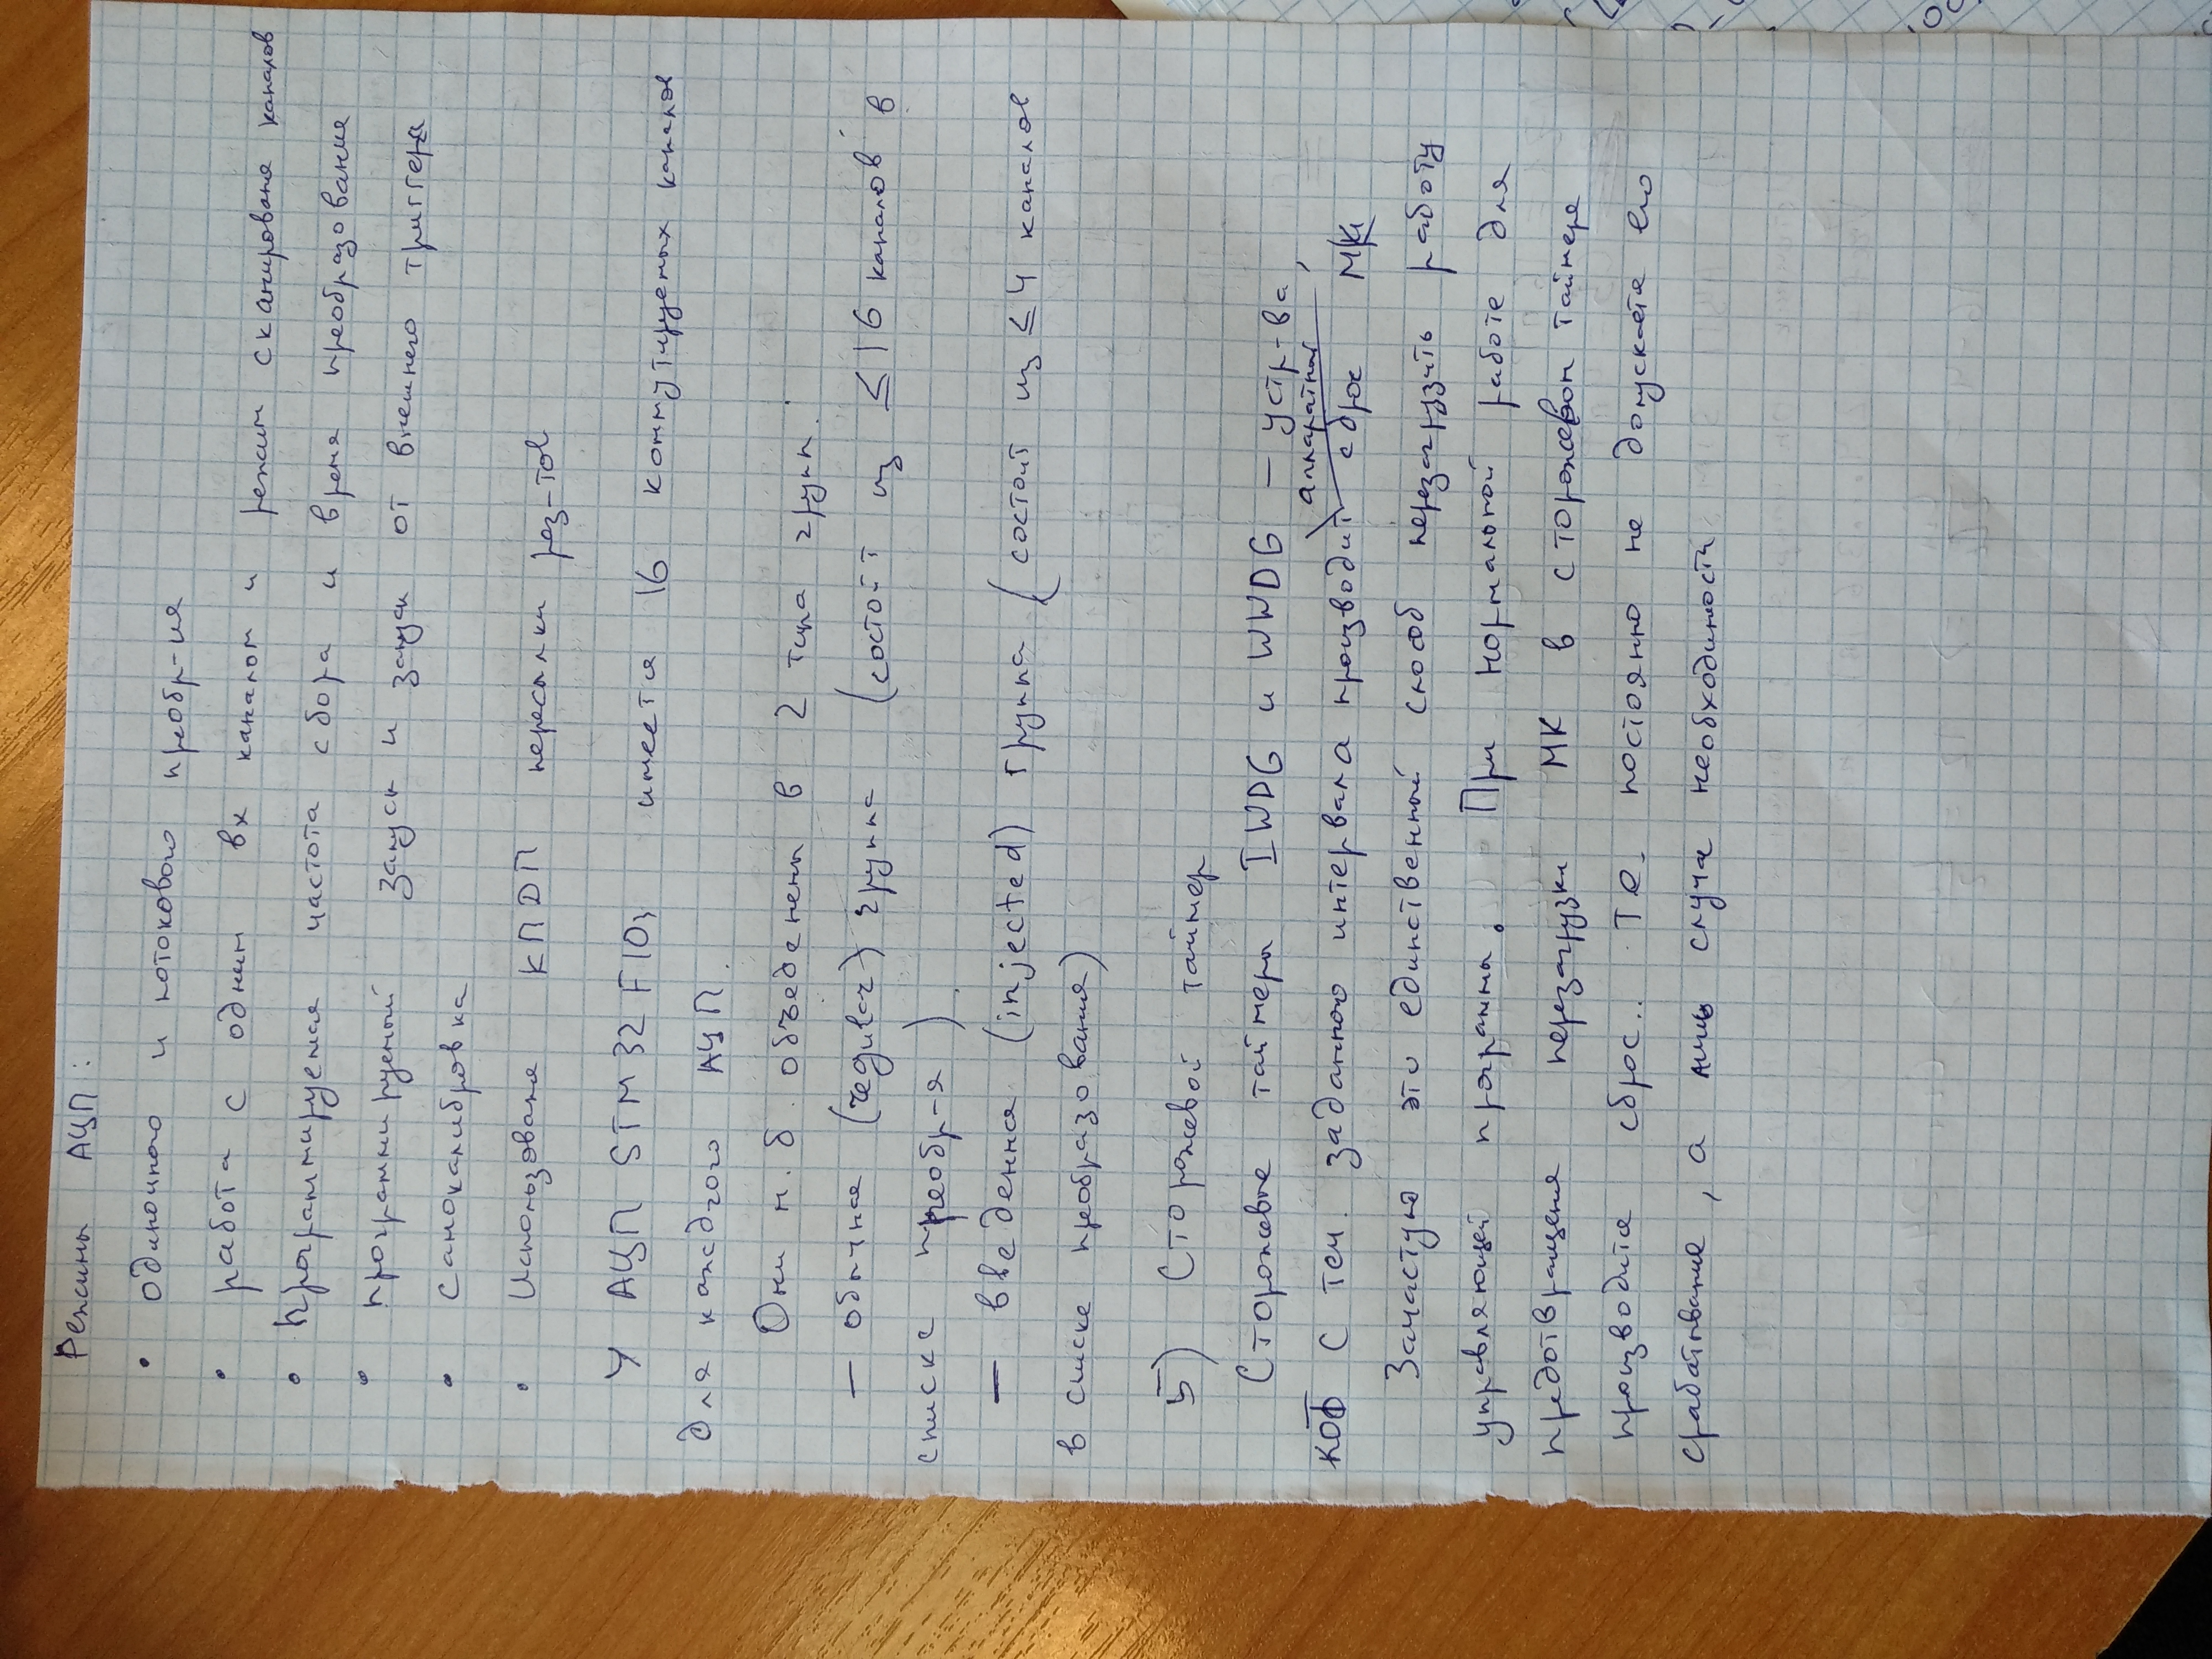 Режимы АЦП:
• одиночного и потокового преобр-ия
• работа с одним вх каналом и режим сканирования каналов
• программируемая частота сбора и время преобразования
• программируемый запуск и запуск от внешнего триггера
• самокалибровка
• Использования КПДП пересылки рез-тов
У АЦП STM32F103 имеется 16 коммутируемых каналов
для каждого АЦП.
Они м.б. объеденены в 2 типа групп.
– обычная (regular) группа (состоит из ≤16 каналов в
списке преобр-я)
– введенная (injected) группа (состоит из ≤4 каналов
в списке преобразования)
5) Сторожевой таймер
Сторожевые таймеры IWDG и WWDG – устр-ва,
аппаратный
кот с теч. заданного интервала производит сброс МК
Зачастую это единственный способ перезагрузить работу
управляющей програмы. При нормальной работе для
предотвращения перезагрузки МК в сторожевом таймере
производится сброс... Т.е. постоянно не допускается его
срабатывание, а лишь случае необходимости